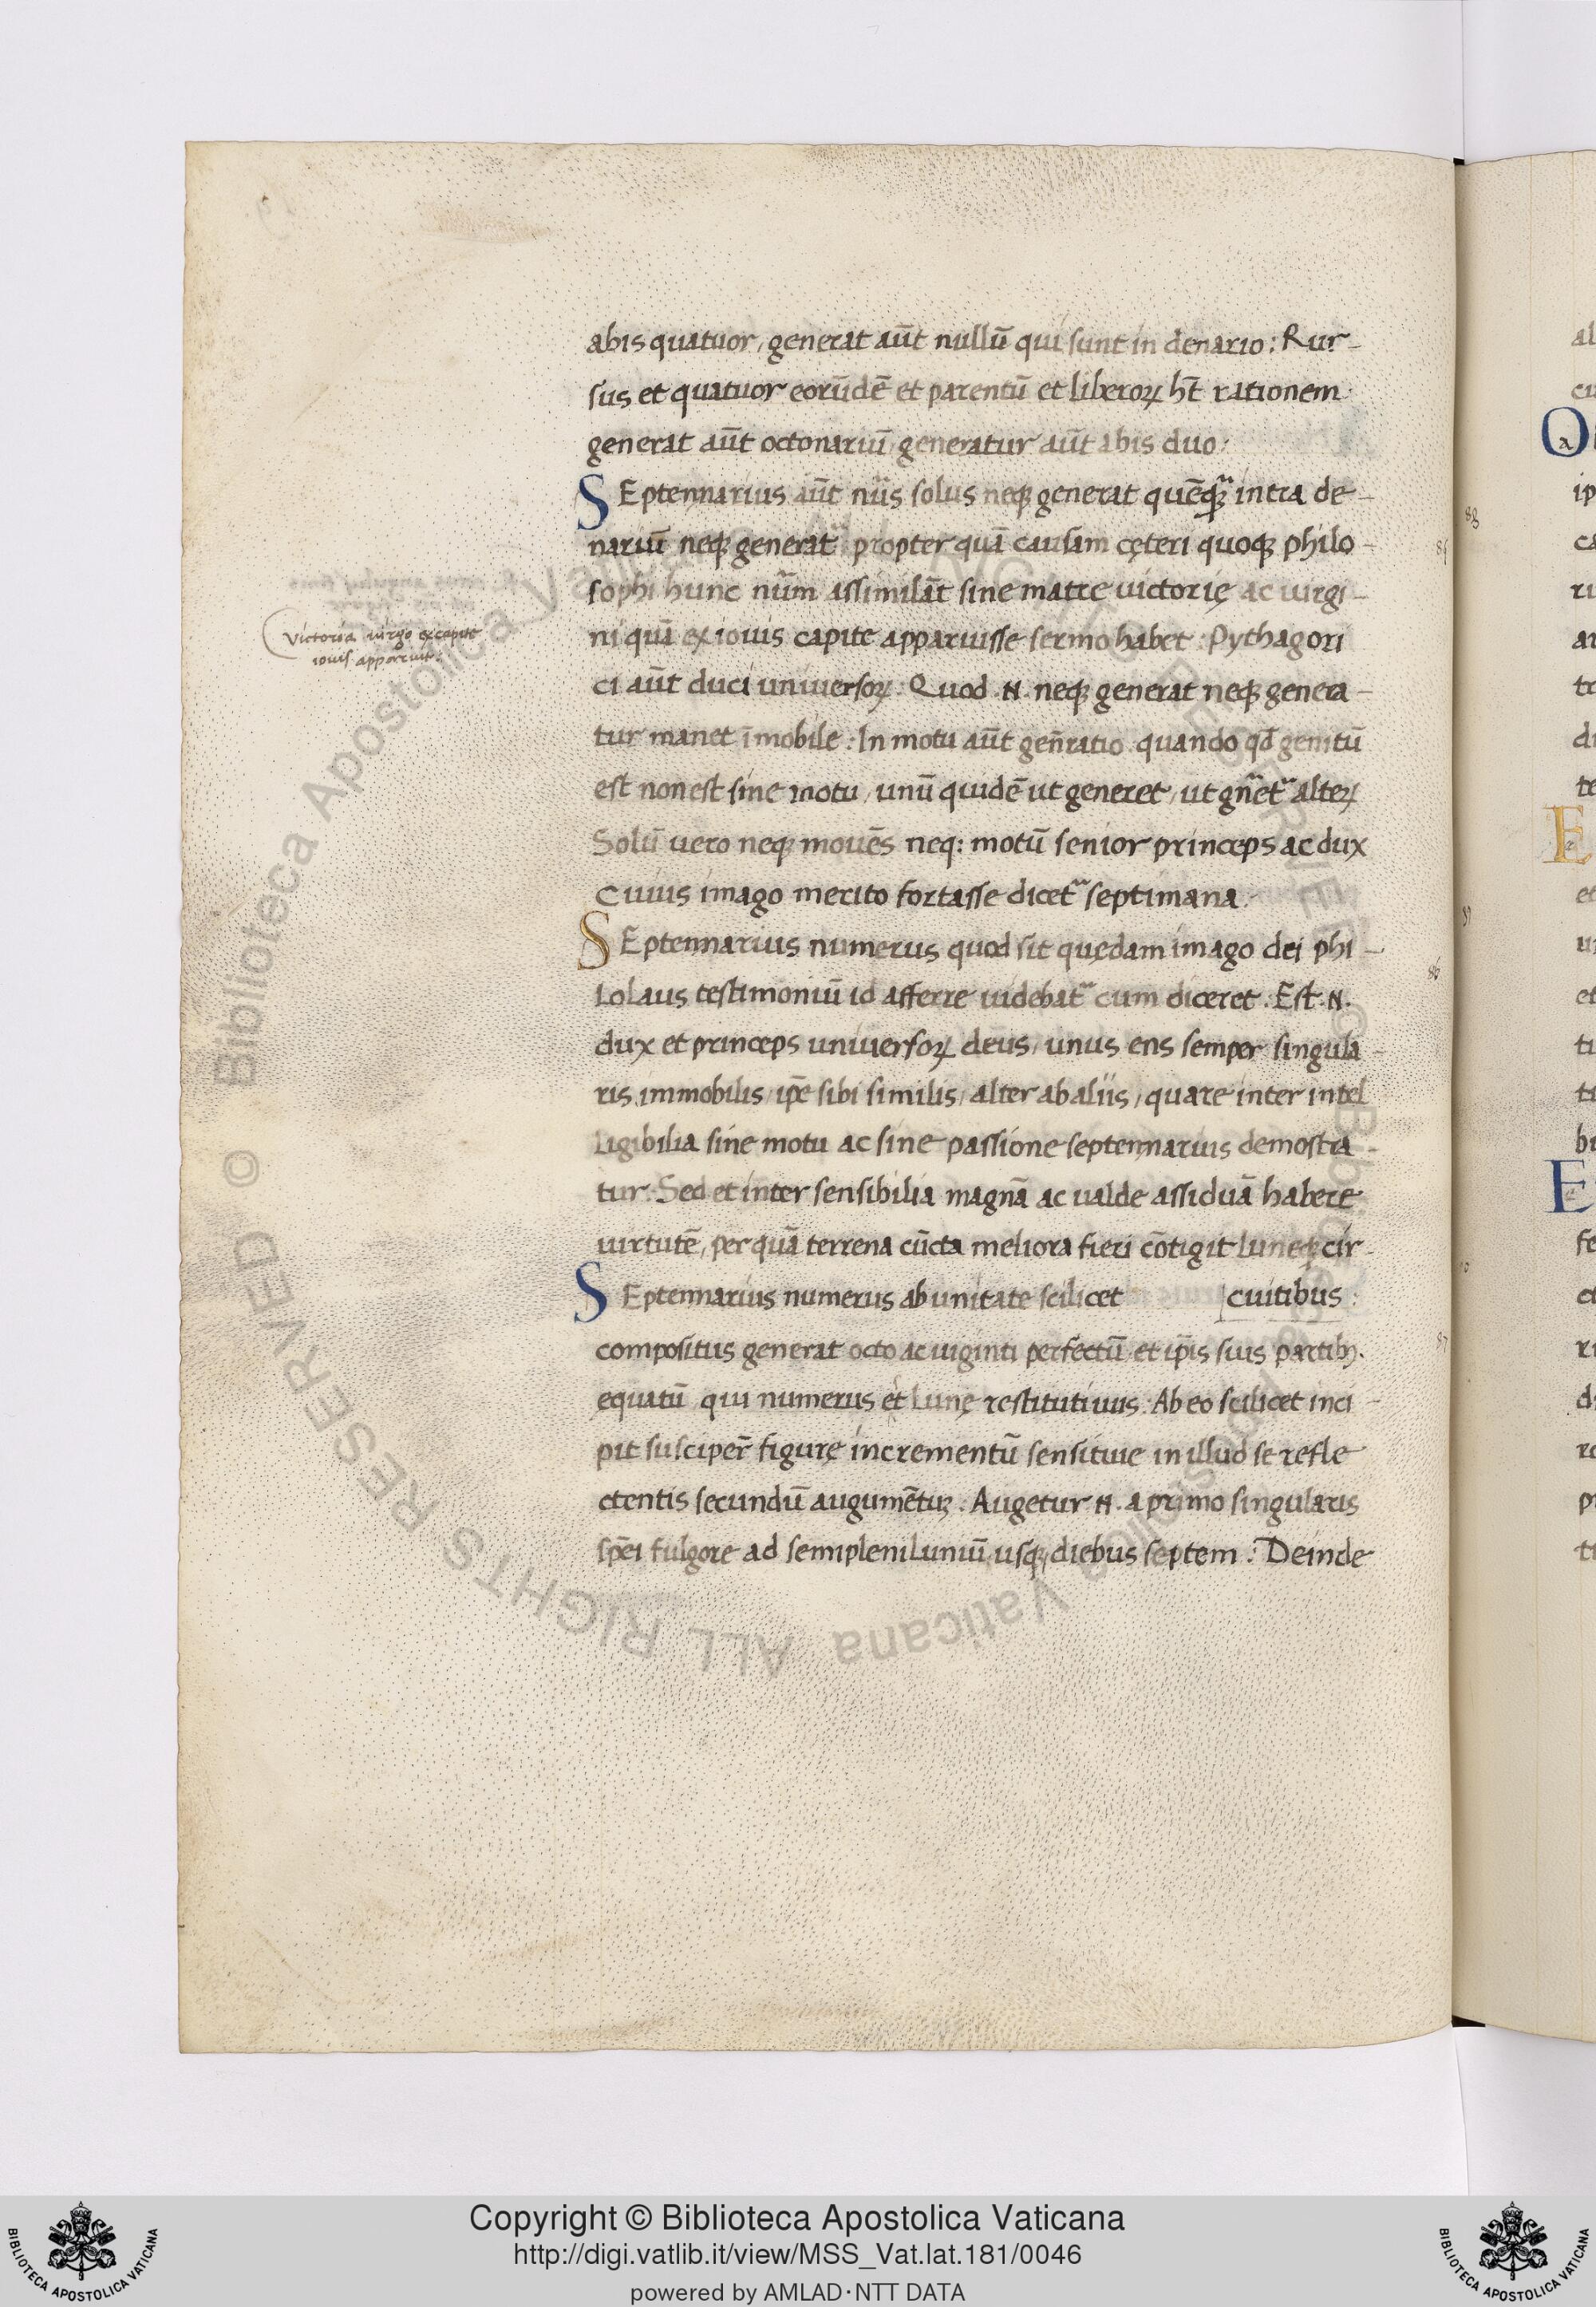 abis quatuor, generat aūt nullū qui sunt in denario: Rur-
sus et quatuor eorūdē et parentū et liberoꝝ hт̄ rationem
generat aūt octonariū generatur aūt abis duo:
SEptennarius aūt nūs solus neqꝫ generat quēqꝫ intra de-
nariū neqꝫ generat᷑ propter quā causam cęteri quoqꝫ philo-
sophi hunc nūm assimilāt sine matre uictorię ac uirgi-
ni quā ex iouis capite apparuisse sermo habet: Pythagori
ci aūt duci uniuersoꝝ: Quod .N. neqꝫ generat neqꝫ genera-
tur manet īmobile: In motu aūt gen̄ratio quando qd̄ genitū
est non est sine motu, unū quidē ut generet, ut gn̄et᷑ alteꝝ
Solū uero neqꝫ mouēs neq: motū senior princeps ac dux
Cuius imago merito fortasse dicet᷑ septimana:
SEptennarius numerus quod sit quędam imago dei phi-
Lolaus testimoniū id afferre uidebat᷑ cum diceret. Est .N.
dux et princeps uniuersoꝝ deus, unus ens semper singula-
ris, immobilis, ip̄e sibi similis, alter ab aliis, quare inter intel
Ligibilia sine motu ac sine passione septennarius demostra-
tur: Sed et inter sensibilia magnā ac ualde assiduā habere
uirtutē, per quā terrena cūcta meliora fieri cōtigit luneqꝫ cir-
SEptennarius numerus ab unitate scilicet [cuitibus:
compositus generat octo ac uiginti perfectū et ip̄is suis partibꝫ.
ęquatū qui numerus et Lunę restitutiuus: Ab eo scilicet inci-
pit susciper̄ figurę incrementū sensitiuę in illud se refle
ctentis secundū augumētuꝫ: Augetur .N. a primo singularis
sp̄ei fulgore ad semiplenilunıū usqꝫ diebus septem: Deinde
Victoria uirgo ex capite
iouis apparuit:
85
86
87
88
89
Biblioteca Apostolica Vaticana
ALL RIGHTS RESERVED ©
Copyright © Biblioteca Apostolica Vaticana
http://digi.vatlib.it/view/MSS_Vat.lat.181/0046
powered by AMLAD·NTT DATA
BIBLIOTECA APOSTOLICA VATICANA
BIBLIOTECA APOSTOLICA VATICANA